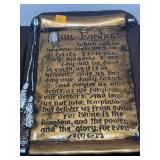 Our Father
Which art in
heaven, hallowed be
kingdom
will be done
in earth, as it is in
heaven. Give us this
day our daily bread.
and forgive us our
debts, as we forgive
our debtors. And lead
us not into temptation
but deliver us from evil
For thine is the
kingdom, and the power,
and the glory, forever
amen